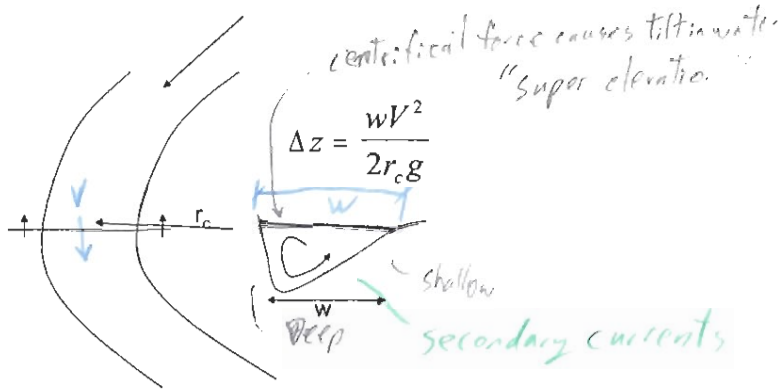 centrifical force causes tilt in water
"super elevation"
Δz = wV²/2r_c g
W
V
r_c
shallow
w
Deep
secondary currents